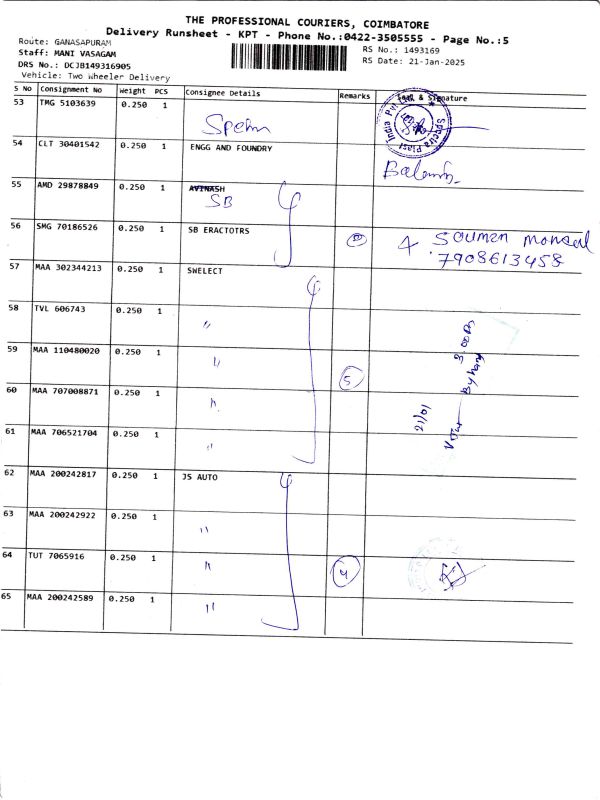 THE PROFESSIONAL COURIERS, COIMBATORE
Delivery Runsheet - KPT - Phone No.:0422-3505555 - Page No.:5
Route: GANASAPURAM
Staff: MANI VASAGAM
DRS No.: DCJB149316905
Vehicle: Two Wheeler Delivery
RS No.: 1493169
RS Date: 21-Jan-2025
S No Consignment No Weight PCS Consignee Details Remarks Seal & Signature
53 TMG 5103639 0.250 1
Spectra Plast India Pvt. Ltd.
54 CLT 30401542 0.250 1 ENGG AND FOUNDRY
55 AMD 29878849 0.250 1 AVINASH
SB
56 SMG 70186526 0.250 1 SB ERACTOTRS
Soumen Mondal
7908613458
57 MAA 302344213 0.250 1 SWELECT
58 TVL 606743 0.250 1 "
59 MAA 110480020 0.250 1 " 5
60 MAA 707008871 0.250 1 "
61 MAA 706521704 0.250 1 "
21/01
62 MAA 200242817 0.250 1 JS AUTO
63 MAA 200242922 0.250 1 "
64 TUT 7065916 0.250 1 " 4
65 MAA 200242589 0.250 1 "